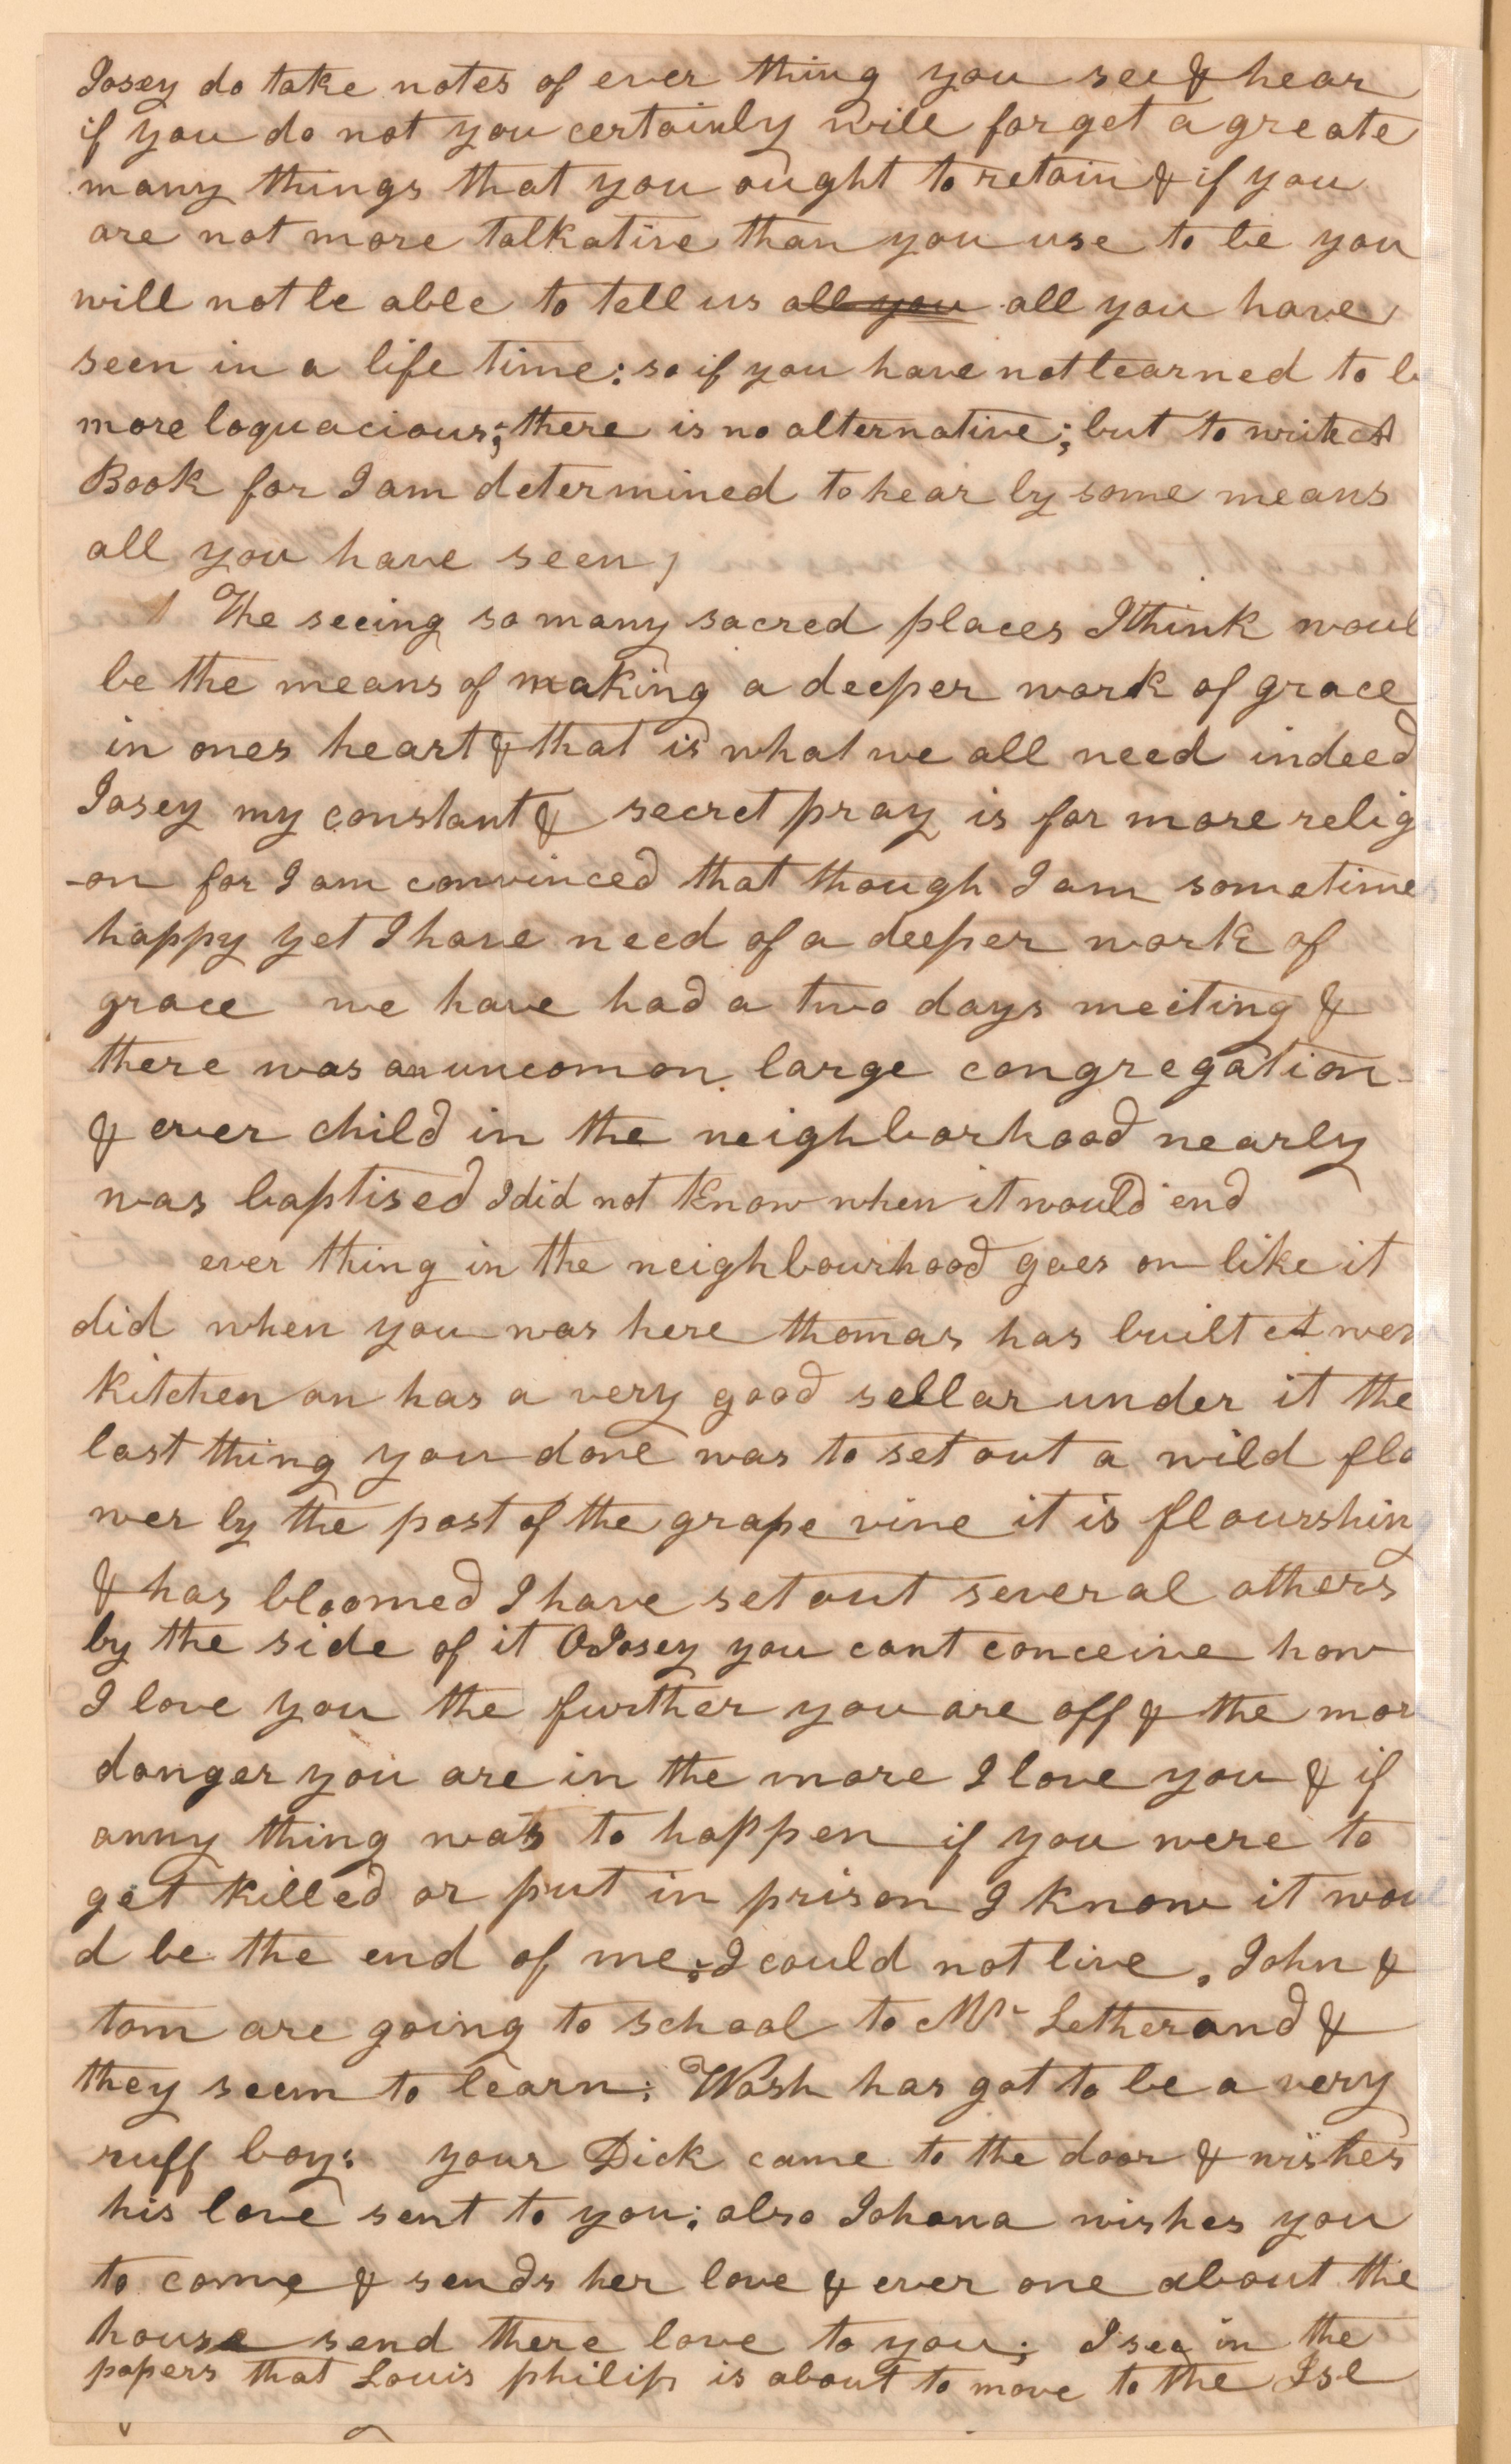 Josey do take notes of ever thing you see & hear
if you do not you certainly will forget a greate
many things that you ought to retain & if you
are not more talkative than you use to be you
will not be able to tell us all you all you have
seen in a life time: so if you have not learned to b
more loquacious; there is no alternative; but to write A
Book for I am determined to hear by some means
all you have seen,
The seeing so many sacred places I think woul
be the means of making a deeper work of grace
in ones heart & that is what we all need indeed
Josey my constant & secret pray is for more relig
-on for I am convinced that though I am sometimes
happy yet I have need of a deeper work of
grace we have had a two days meeting &
there was an uncomon large congregation
& ever child in the neighborhood nearly
was baptised I did not know when it would end
ever thing in the neighbourhood goes on like it
did when you was here thomas has built A new
kitchen an has a very good sellar under it the
last thing you done was to set out a wild flo
wer by the post of the grape vine it is flourshing
& has bloomed I have set out several others
by the side of it O Josey you cant conceive how
I love you the further you are off & the mor
danger you are in the more I love you & if
anny thing was to happen if you were to
get killed or put in prison I know it woul
d be the end of me: I could not live. John &
tom are going to school to Mr Letherand &
they seem to learn: Wash has got to be a very
ruff boy: your Dick came to the door & wishes
his love sent to you; also Johana wishes you
to come & sends her love & ever one about the
house send there love to you; I see in the
papers that Louis philip is about to move to the Isl